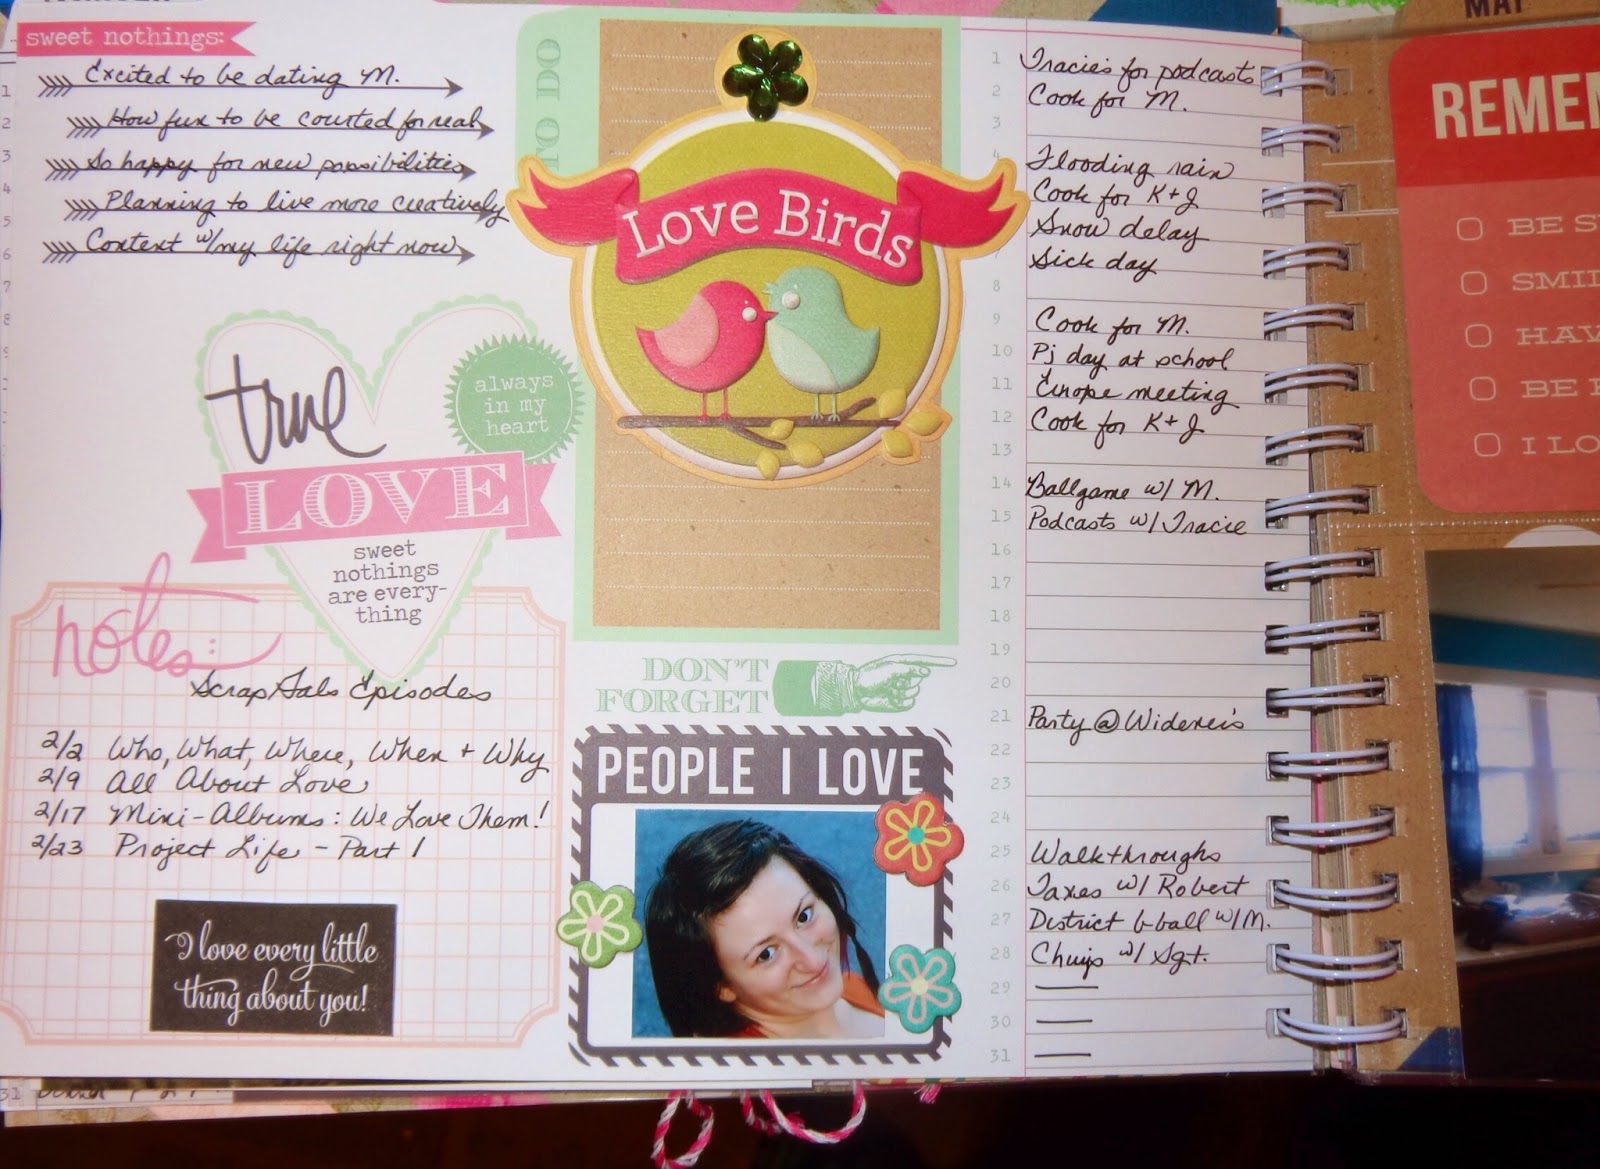 sweet nothings:
Excited to be dating M.
How fun to be courted for real
So happy for new possibilities
Planning to live more creatively
Content w/ my life right now
true
LOVE
sweet
nothings
are every-
thing
always
in my
heart
notes:
ScrapGals Episodes
2/2 Who, What, Where, When + Why
2/9 All About Love
2/17 Mini-Albums: We Love Them!
2/23 Project Life - Part 1
I love every little
thing about you!
TO DO
Love Birds
DON'T
FORGET
PEOPLE I LOVE
1 Tracie's for podcasts
2 Cook for M.
3
4 Flooding rain
Cook for K + J
Snow delay
7 Sick day
8
9 Cook for M.
10 Pj day at school
11 Europe meeting
12 Cook for K + J
13
14 Ballgame w/ M.
15 Podcasts w/ Tracie
16
17
18
19
20
21 Party @ Widener's
22
23
24
25 Walkthroughs
26 Taxes w/ Robert
27 District b-ball w/ M.
28 Chuys w/ Sgt.
29
30
31
MAY
REMEM
BE S
SMIL
HAV
BE
I LO
1
2
3
4
5
6
7
8
31